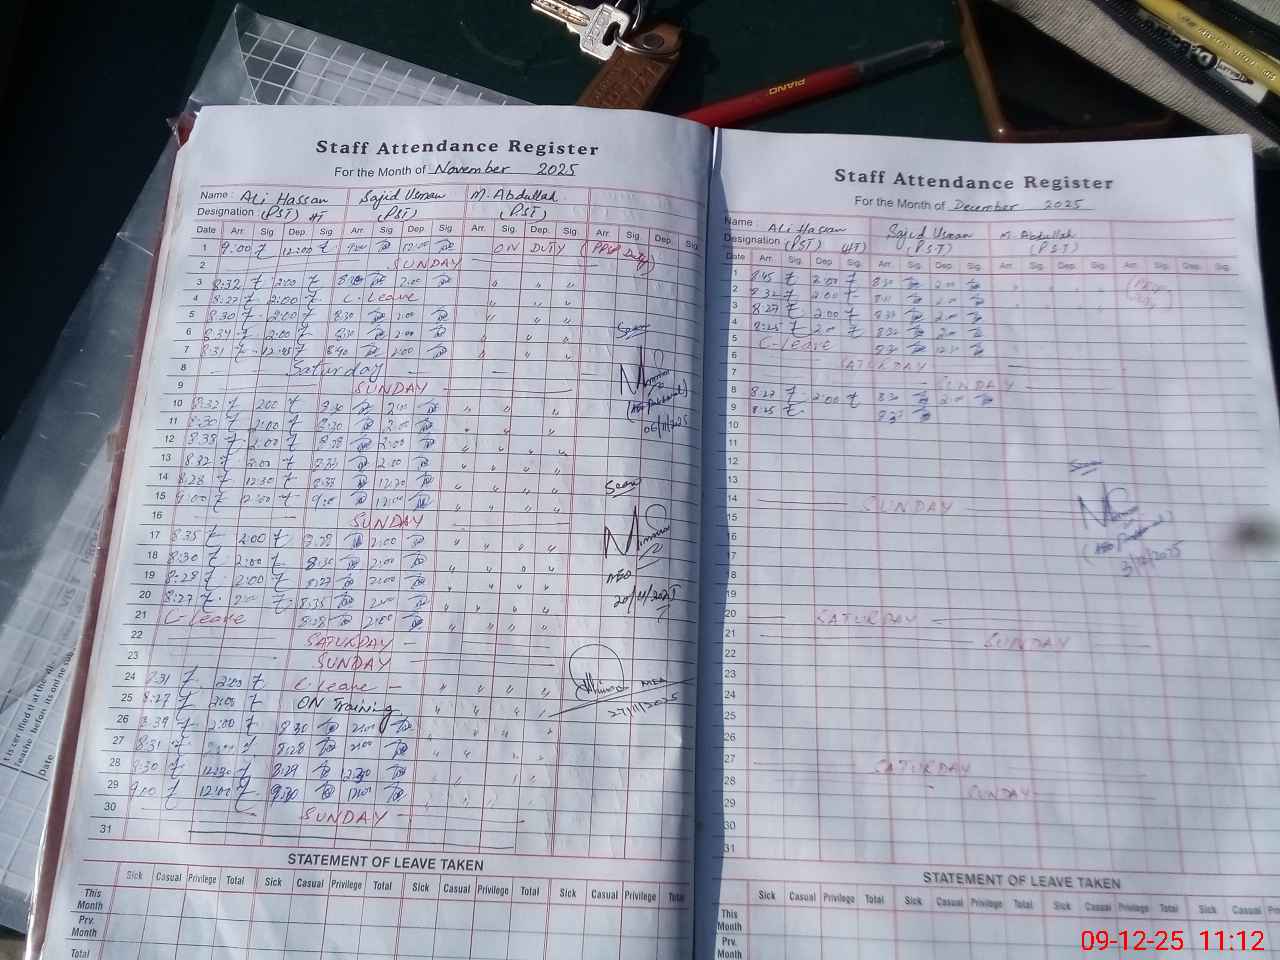 Staff Attendance Register
For the Month of November 2025
Name : Ali Hassan Sajid Usman M. Abdullah
Designation (PST) HT (PST) (PST)
Date Arr. Sig. Dep. Sig. Arr. Sig. Dep. Sig. Arr. Sig. Dep. Sig. Arr. Sig. Dep. Sig.
1 9:00 12:00 9:00 12:00 ON DUTY
2 SUNDAY
3 8:32 2:00 8:30 2:00 " " "
4 8:27 2:00 C-Leave " " "
5 8:30 2:00 8:30 2:00 " " "
6 8:34 2:00 8:30 2:00 " " "
7 8:31 12:45 8:40 " " "
8 Saturday
9 SUNDAY
10 8:32 2:00 8:30 2:00 " " "
11 8:30 2:00 8:30 2:00 " " "
12 8:38 2:00 8:28 2:00 " " "
06/11/2025
13 8:32 2:00 2:00 " " "
14 8:28 12:30 8:33 12:30 " " "
15 9:00 12:00 9:00 12:00 " " "
Seen
16 SUNDAY
17 8:35 2:00 8:28 2:00 " " "
18 8:30 2:00 8:30 2:00 " " "
19 8:28 2:00 8:27 2:00 " " "
AEO
20 8:27 2:00 8:35 2:00 " " "
20/11/2025
21 C-leave 8:28 2:00 " " "
22 SATURDAY
23 SUNDAY
24 8:31 2:00 C-Leave " " "
MEA
25 8:27 2:00 ON Training " " "
27/11/2025
26 8:39 2:00 8:30 2:00 " " "
27 8:31 2:00 8:28 2:00 " " "
28 8:30 12:30 8:29 12:30 " "
29 9:00 12:00 9:00 12:00 " " "
30 SUNDAY
31
STATEMENT OF LEAVE TAKEN
Sick Casual Privilege Total Sick Casual Privilege Total Sick Casual Privilege Total Sick Casual Privilege Total
This Month
Prv. Month
Total
Staff Attendance Register
For the Month of December 2025
Name : Ali Hassan Sajid Usman M. Abdullah
Designation (PST) (HT) (PST) (PST)
Date Arr. Sig. Dep. Sig. Arr. Sig. Dep. Sig. Arr. Sig. Dep. Sig. Arr. Sig. Dep. Sig.
1 8:45 2:00 8:30 2:00
2 8:32 2:00 2:00
3 8:27 2:00 2:00
4 8:25 2:00 8:32 2:00
5 C-leave 12:30
6 SATURDAY
7 SUNDAY
8 8:27 2:00 8:30 2:00
9 8:25 8:27
10
11
12
13
14 SUNDAY
15
16
17
3/12/2025
18
19
20 SATURDAY
21 SUNDAY
22
23
24
25
26
27 SATURDAY
28 SUNDAY
29
30
31
STATEMENT OF LEAVE TAKEN
Sick Casual Privilege Total Sick Casual Privilege Total Sick Casual Privilege Total Sick Casual
This Month
Prv. Month
PIANO
09-12-25 11:12